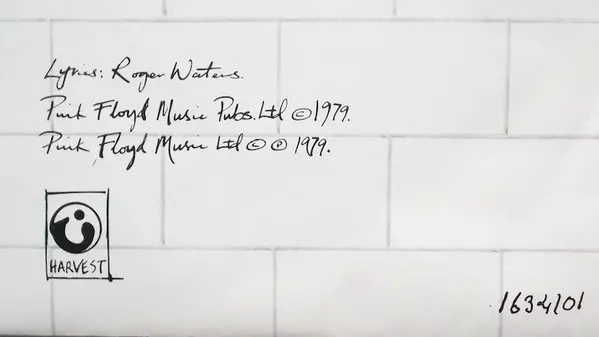 Lyrics: Roger Waters.
Pink Floyd Music Pubs. Ltd © 1979.
Pink Floyd Music Ltd © ℗ 1979.
HARVEST
1634/01